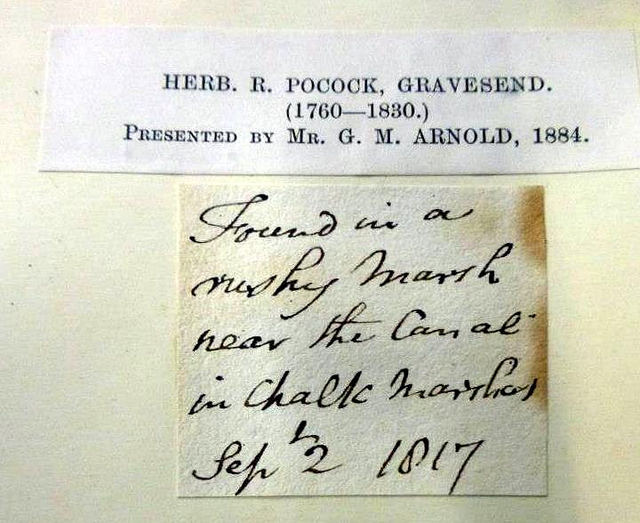 HERB. R. POCOCK, GRAVESEND.
(1760—1830.)
PRESENTED BY MR. G. M. ARNOLD, 1884.
Found in a
rushy Marsh
near the Canal
in Chalk Marshes
Sept 2 1817